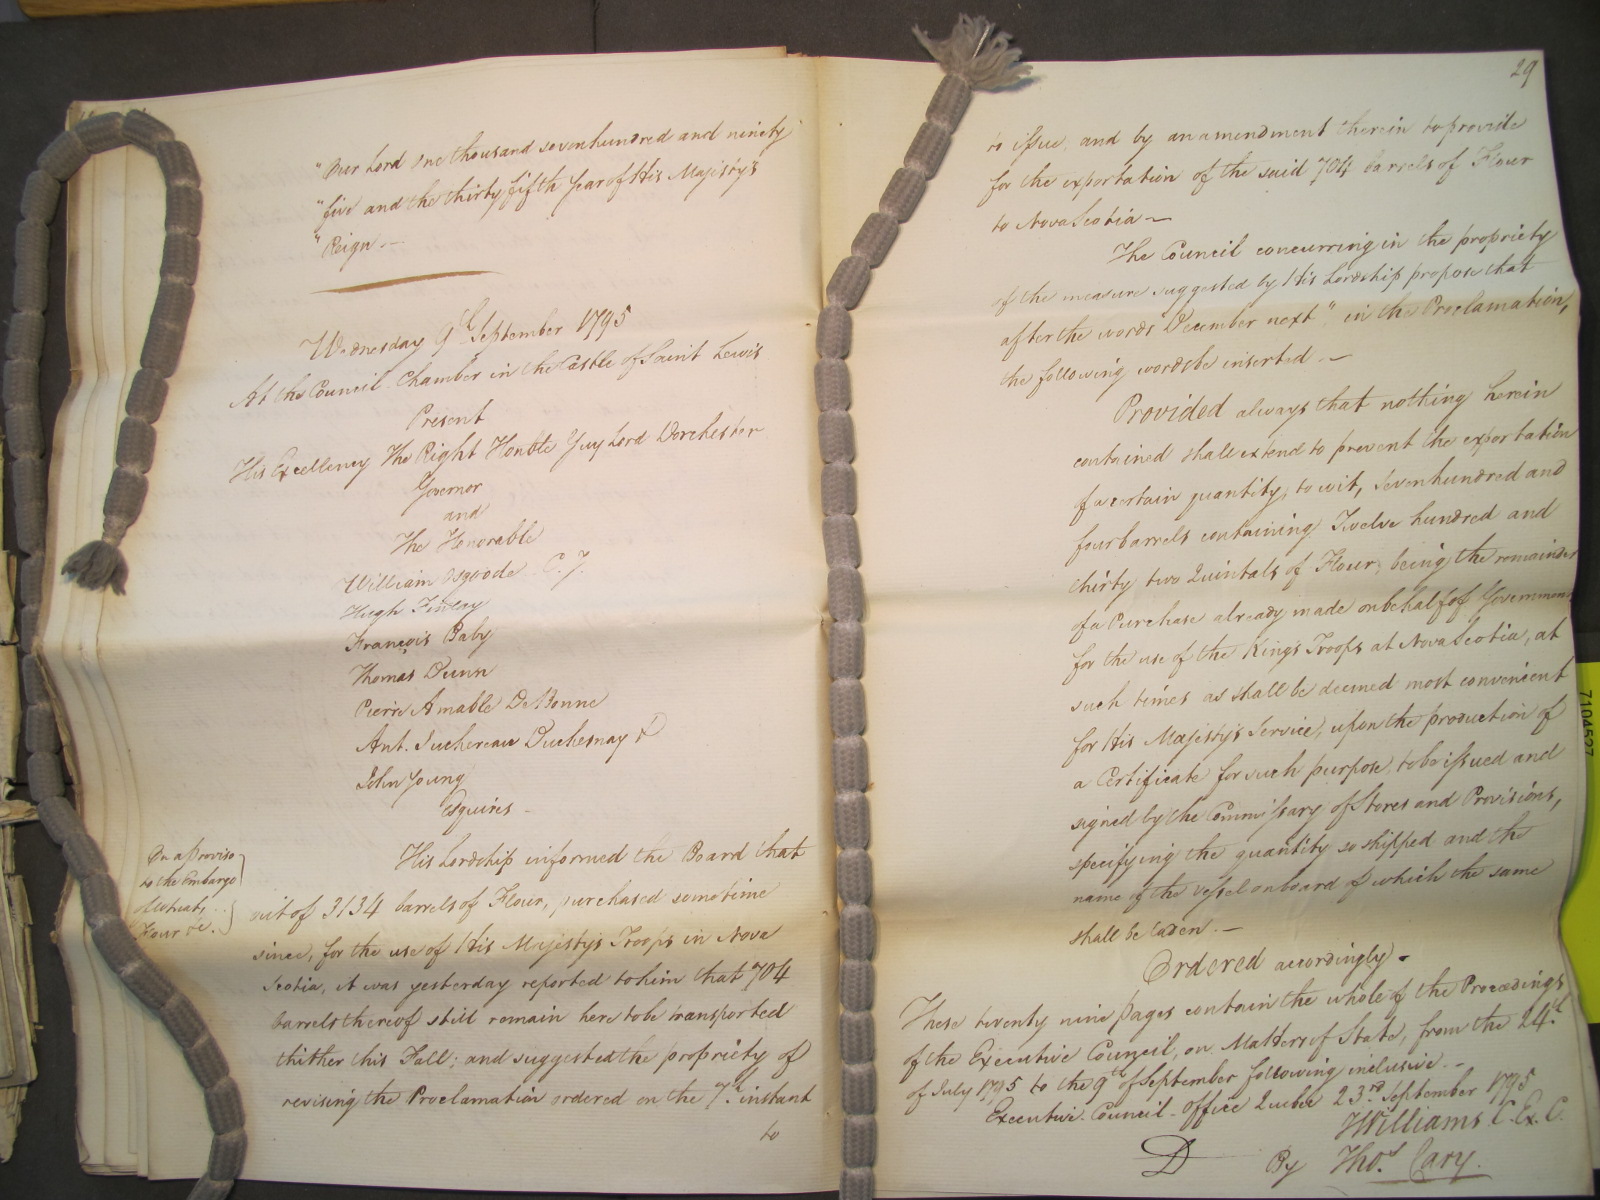 "Our Lord one thousand sevenhundred and ninety
"five and the thirty fifth Year of His Majesty's
"Reign.—
Wednesday 9th September 1795
At the Council Chamber in the Castle of Saint Lewis
Present
His Excellency The Right Honble Guy Lord Dorchester
Governor
and
The Honorable
William Osgoode C. J.
Hugh Finlay
François Baby
Thomas Dunn
Pierre Amable DeBonne
Ant. Juchereau Duchesnay &
John Young
Esquires -
On a Proviso
to the Embargo
of Wheat,
Flour &c.
His Lordship informed the Board that
out of 3134 barrels of Flour, purchased sometime
since, for the use of His Majesty's Troops in Nova
Scotia, it was yesterday reported to him that 704
barrels thereof still remain here to be transported
thither this Fall; and suggested the propriety of
revising the Proclamation ordered on the 7th instant
to
29
to issue, and by an amendment therein to provide
for the exportation of the said 704 barrels of Flour
to Nova Scotia —
The Council concurring in the propriety
of the measure suggested by His Lordship propose that
after the words December next" in the Proclamation,
the following words be inserted —
Provided always that nothing herein
contained shall extend to prevent the exportation
of a certain quantity, to wit, Sevenhundred and
four barrels containing Twelve hundred and
thirty two Quintals of Flour, being the remainder
of a Purchase already made on behalf of Government
for the use of the King's Troops at Nova Scotia, at
such times as shall be deemed most convenient
for His Majesty's Service, upon the production of
a Certificate for such purpose, to be issued and
signed by the Commissary of Stores and Provisions,
specifying the quantity so shipped and the
name of the vessel on board of which the same
shall be laden.—
Ordered accordingly -
These twenty nine pages contain the whole of the Proceedings
of the Executive Council, on Matters of State, from the 24th
of July 1795 to the 9th of September following inclusive.-
Executive Council - Office Quebec 23rd September 1795
JWilliams C. Ex. C.
D By Thos. Cary.
7104527